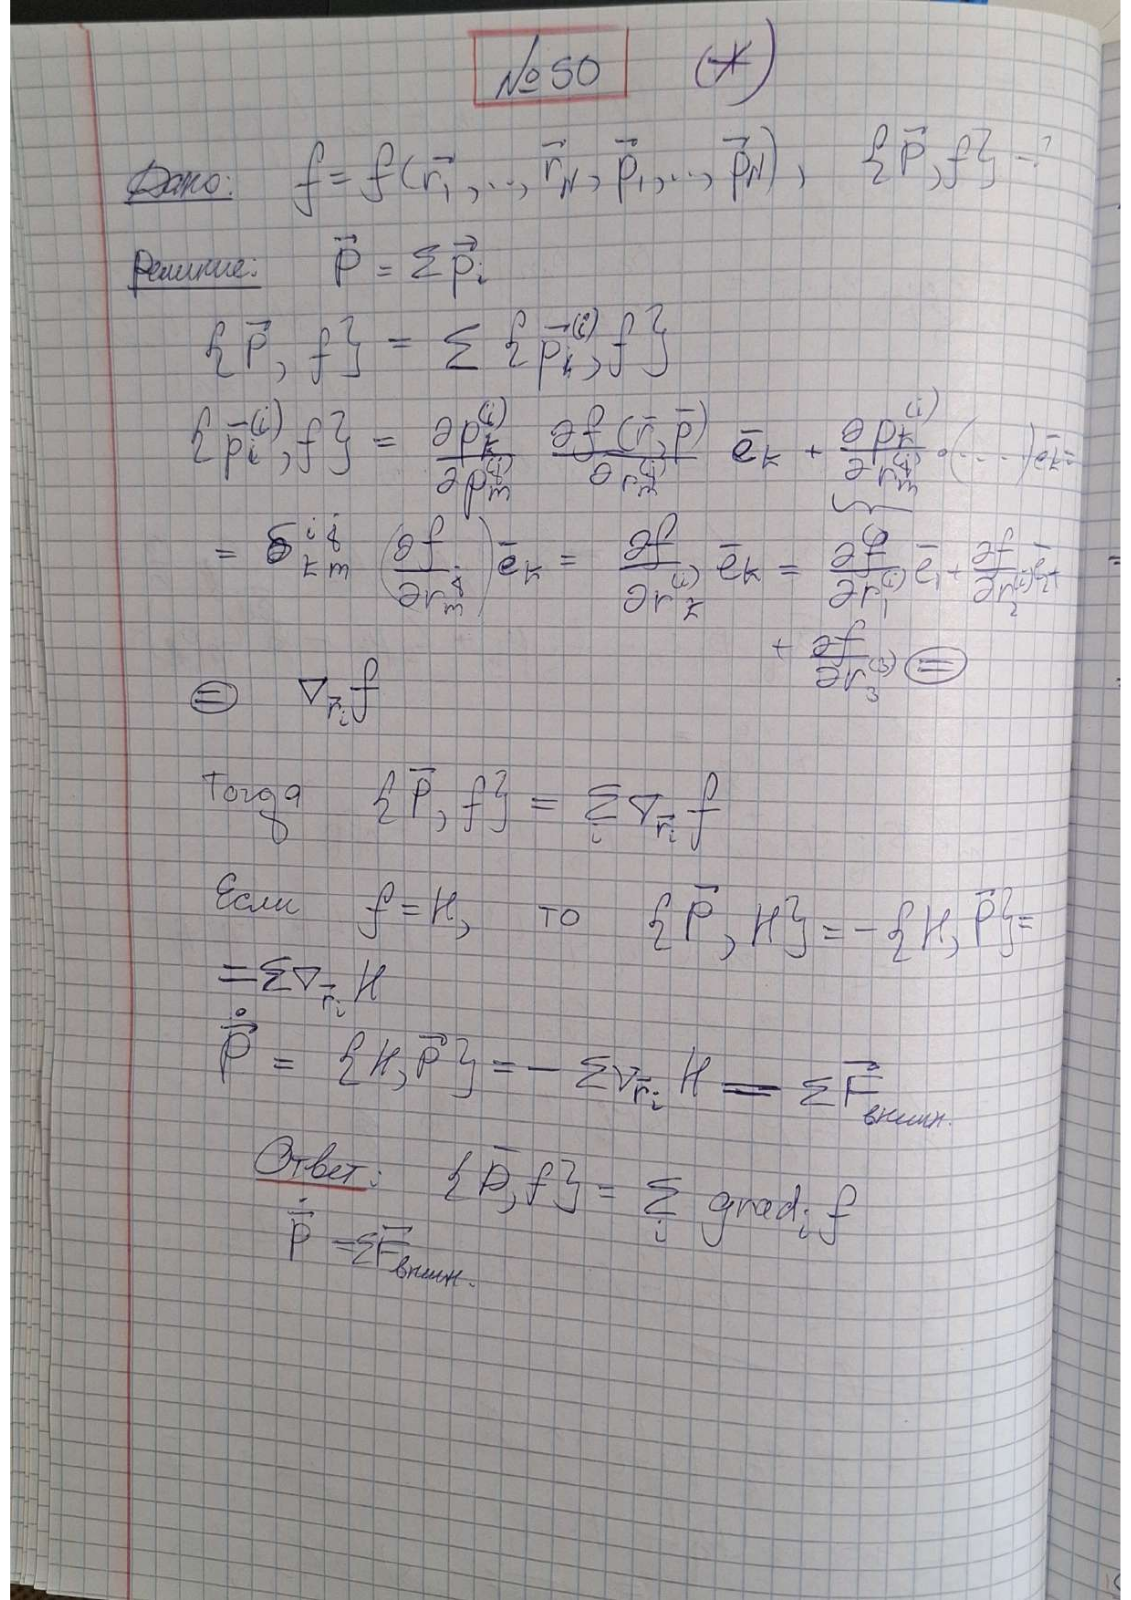 №50 (*)
Дано: f = f(r⃗₁, ..., r⃗_N, p⃗₁, ..., p⃗_N), {P⃗, f} - ?
Решение: P⃗ = Σ p⃗ᵢ
{P⃗, f} = Σ {p⃗ₖ⁽ⁱ⁾, f}
{p̄ᵢ⁽ⁱ⁾, f} = ∂pₖ⁽ⁱ⁾/∂pₘ⁽ʲ⁾ ∂f(r̄, p̄)/∂rₘ⁽ʲ⁾ ēₖ + ∂pₖ⁽ⁱ⁾/∂rₘ⁽ʲ⁾ · (...) ēₖ =
= δ^{i j}_{k m} (∂f/∂rₘʲ) ēₖ = ∂f/∂rₖ⁽ⁱ⁾ ēₖ = ∂f/∂r₁⁽ⁱ⁾ ē₁ + ∂f/∂r₂⁽ⁱ⁾ ē₂ +
+ ∂f/∂r₃⁽³⁾ =
= ∇_{r⃗ᵢ} f
Тогда {P⃗, f} = Σᵢ ∇_{r⃗ᵢ} f
Если f = H, то {P⃗, H} = -{H, P⃗} =
= Σ∇_{r⃗ᵢ} H
P⃗̇ = {H, P⃗} = - Σ∇_{r⃗ᵢ} H = ΣF⃗внешн.
Ответ: {P̄, f} = Σᵢ gradᵢ f
P̄̇ = ΣF⃗внешн.